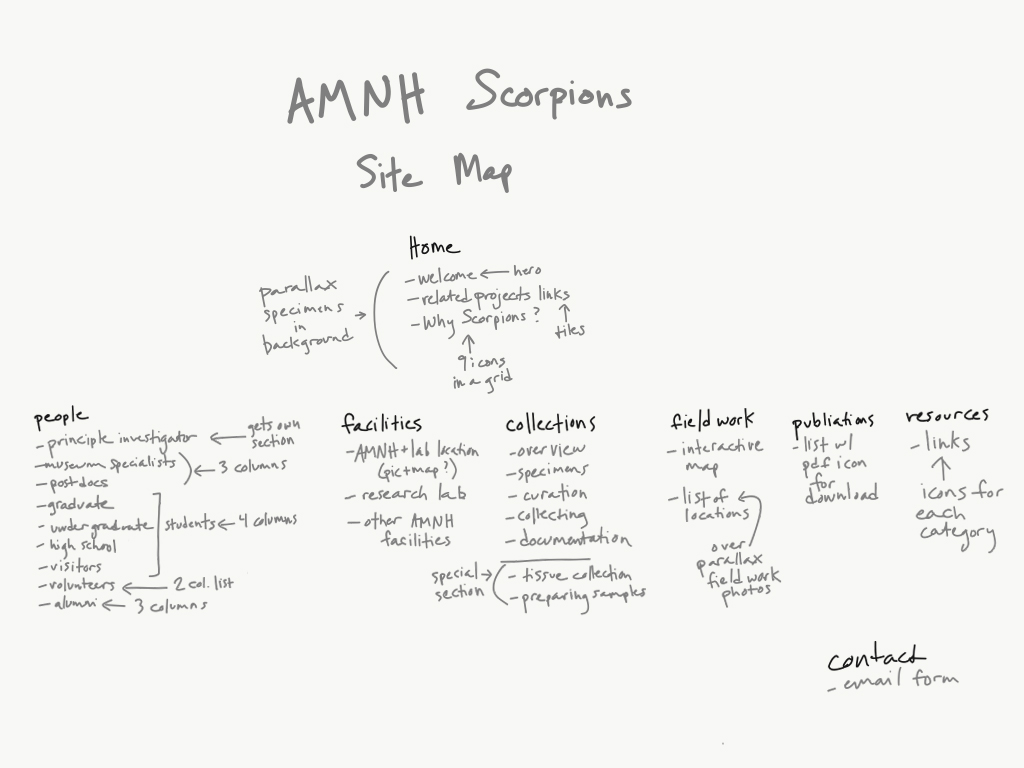 AMNH Scorpions
Site Map
Home
- welcome ← hero
- related projects links
- Why Scorpions?
↑
tiles
↑
9 icons
in a grid
parallax
specimens →
in
background
people
- principle investigator ← gets own
section
- museum specialists
- postdocs
← 3 columns
- graduate
- undergraduate
- high school
- visitors
students ← 4 columns
- volunteers ← 2 col. list
- alumni ← 3 columns
facilities
- AMNH + lab location
(pic + map?)
- research lab
- other AMNH
facilities
collections
- overview
- specimens
- curation
- collecting
- documentation
special →
section
- tissue collection
- preparing samples
field work
- interactive
map
- list of
locations
over
parallax
field work
photos
publiations
- list w/
pdf icon
for
download
resources
- links
↑
icons for
each
category
contact
- email form